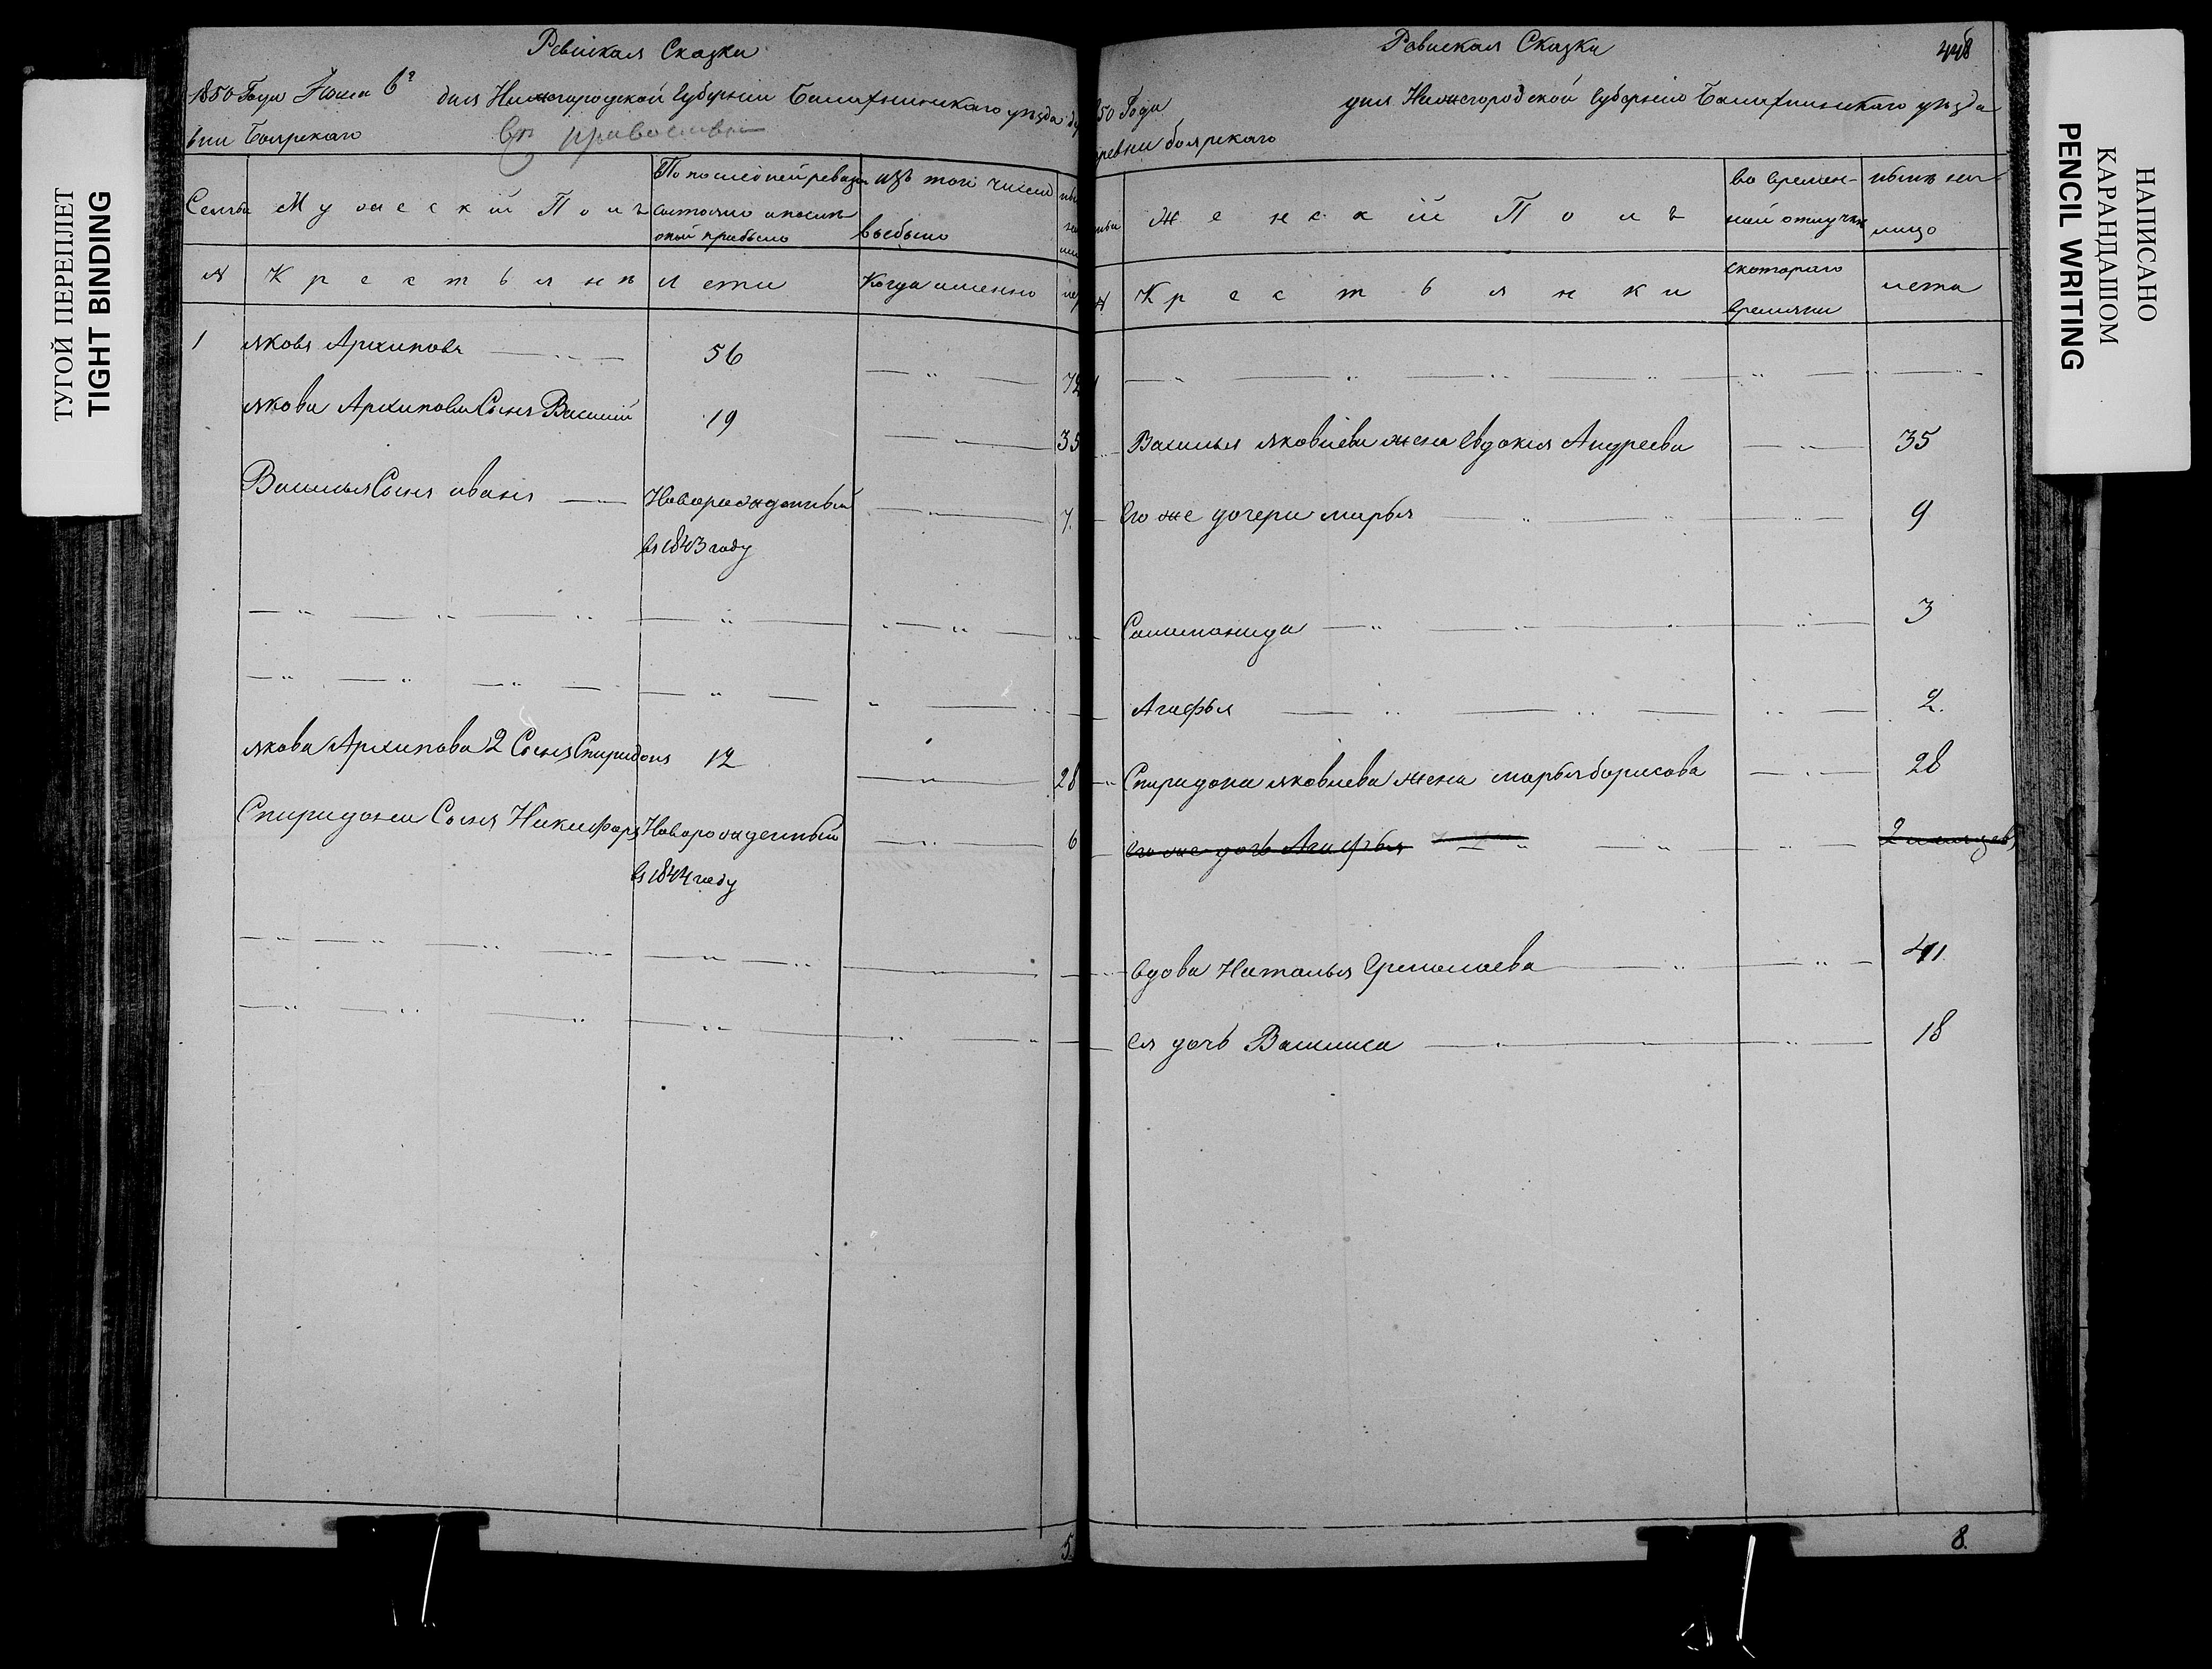 ТУГОЙ ПЕРЕПЛЕТ
TIGHT BINDING
Ревиская Сказка
1850 Года Июля 6 дня Нижегородской Губернии Балахнинского уезда де
вни Боярскаго
Семьи
Мужеский Полъ
По последней ревизи
состояло и после
оной прибыло
изъ того числа
выбыло
№
Крестьяне
лета
Когда именно
1 яковъ Архиповъ 56 72
якова Архипова Сынъ Василий 19 35
Василья Сынъ иванъ Новорожденный 7
въ 1843 году
якова Архипова 2 Сынъ Спиридонъ 12 28
Спиридона Сынъ Никифоръ Новорожденный 6
въ 1844 году
5
Ревиская Сказка
448
850 Года дня Нижегородской Губернии Балахнинскаго уезда
ревни боярскаго
Женский Полъ
во времен-
ной отлучке
ныне на
лицо
№
Крестьянки
скотораго
времяни
лета
1
Василья яковлева жена Евдокия Андреева 35
Его же дочери марья 9
Соломонида 3
Агафья 2
Спиридона яковлева жена марья борисова 28
Его же дочь Агафья 2 месяцев
вдова Наталья Ермолаева 41
Ея дочь Василиса 18
8.
НАПИСАНО
КАРАНДАШОМ
PENCIL WRITING